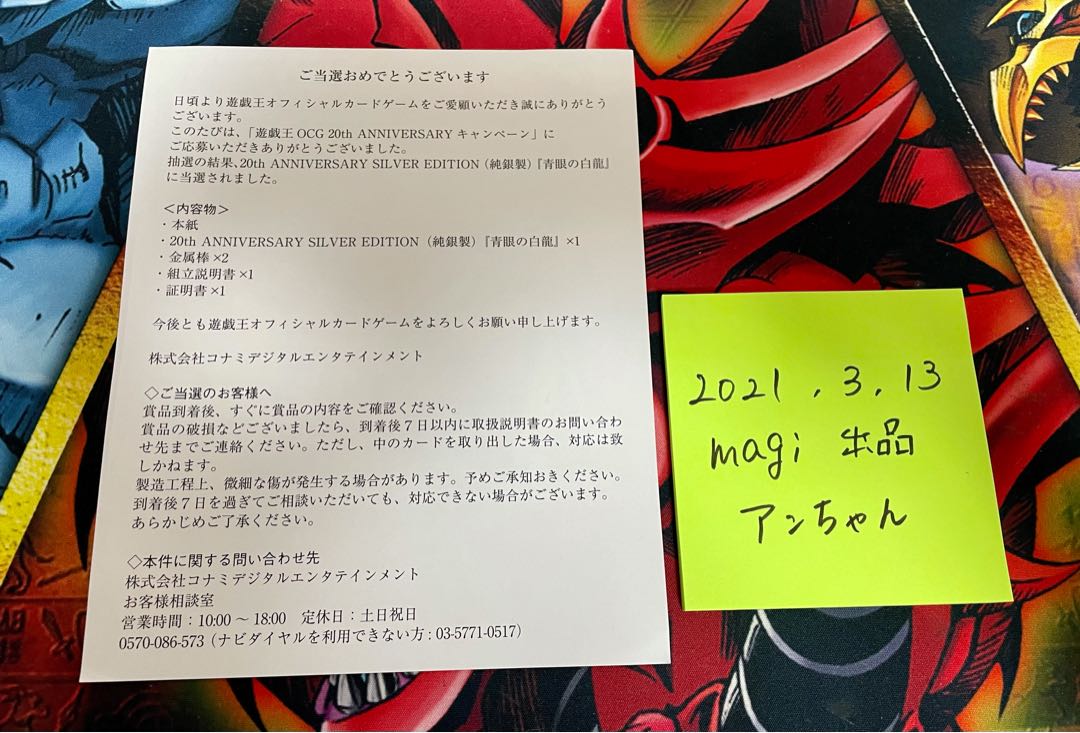 ご当選おめでとうございます
日頃より遊戯王オフィシャルカードゲームをご愛顧いただき誠にありがとう
ございます。
このたびは、「遊戯王 OCG 20th ANNIVERSARY キャンペーン」に
ご応募いただきありがとうございました。
抽選の結果、20th ANNIVERSARY SILVER EDITION（純銀製）『青眼の白龍』
に当選されました。
＜内容物＞
・本紙
・20th ANNIVERSARY SILVER EDITION（純銀製）『青眼の白龍』×1
・金属棒×2
・組立説明書×1
・証明書×1
今後とも遊戯王オフィシャルカードゲームをよろしくお願い申し上げます。
株式会社コナミデジタルエンタテインメント
◇ご当選のお客様へ
賞品到着後、すぐに賞品の内容をご確認ください。
賞品の破損などございましたら、到着後７日以内に取扱説明書のお問い合わ
せ先までご連絡ください。ただし、中のカードを取り出した場合、対応は致
しかねます。
製造工程上、微細な傷が発生する場合があります。予めご承知おきください。
到着後７日を過ぎてご相談いただいても、対応できない場合がございます。
あらかじめご了承ください。
◇本件に関する問い合わせ先
株式会社コナミデジタルエンタテインメント
お客様相談室
営業時間：10:00～18:00　定休日：土日祝日
0570-086-573（ナビダイヤルを利用できない方：03-5771-0517）
2021.3.13
magi 出品
アンちゃん